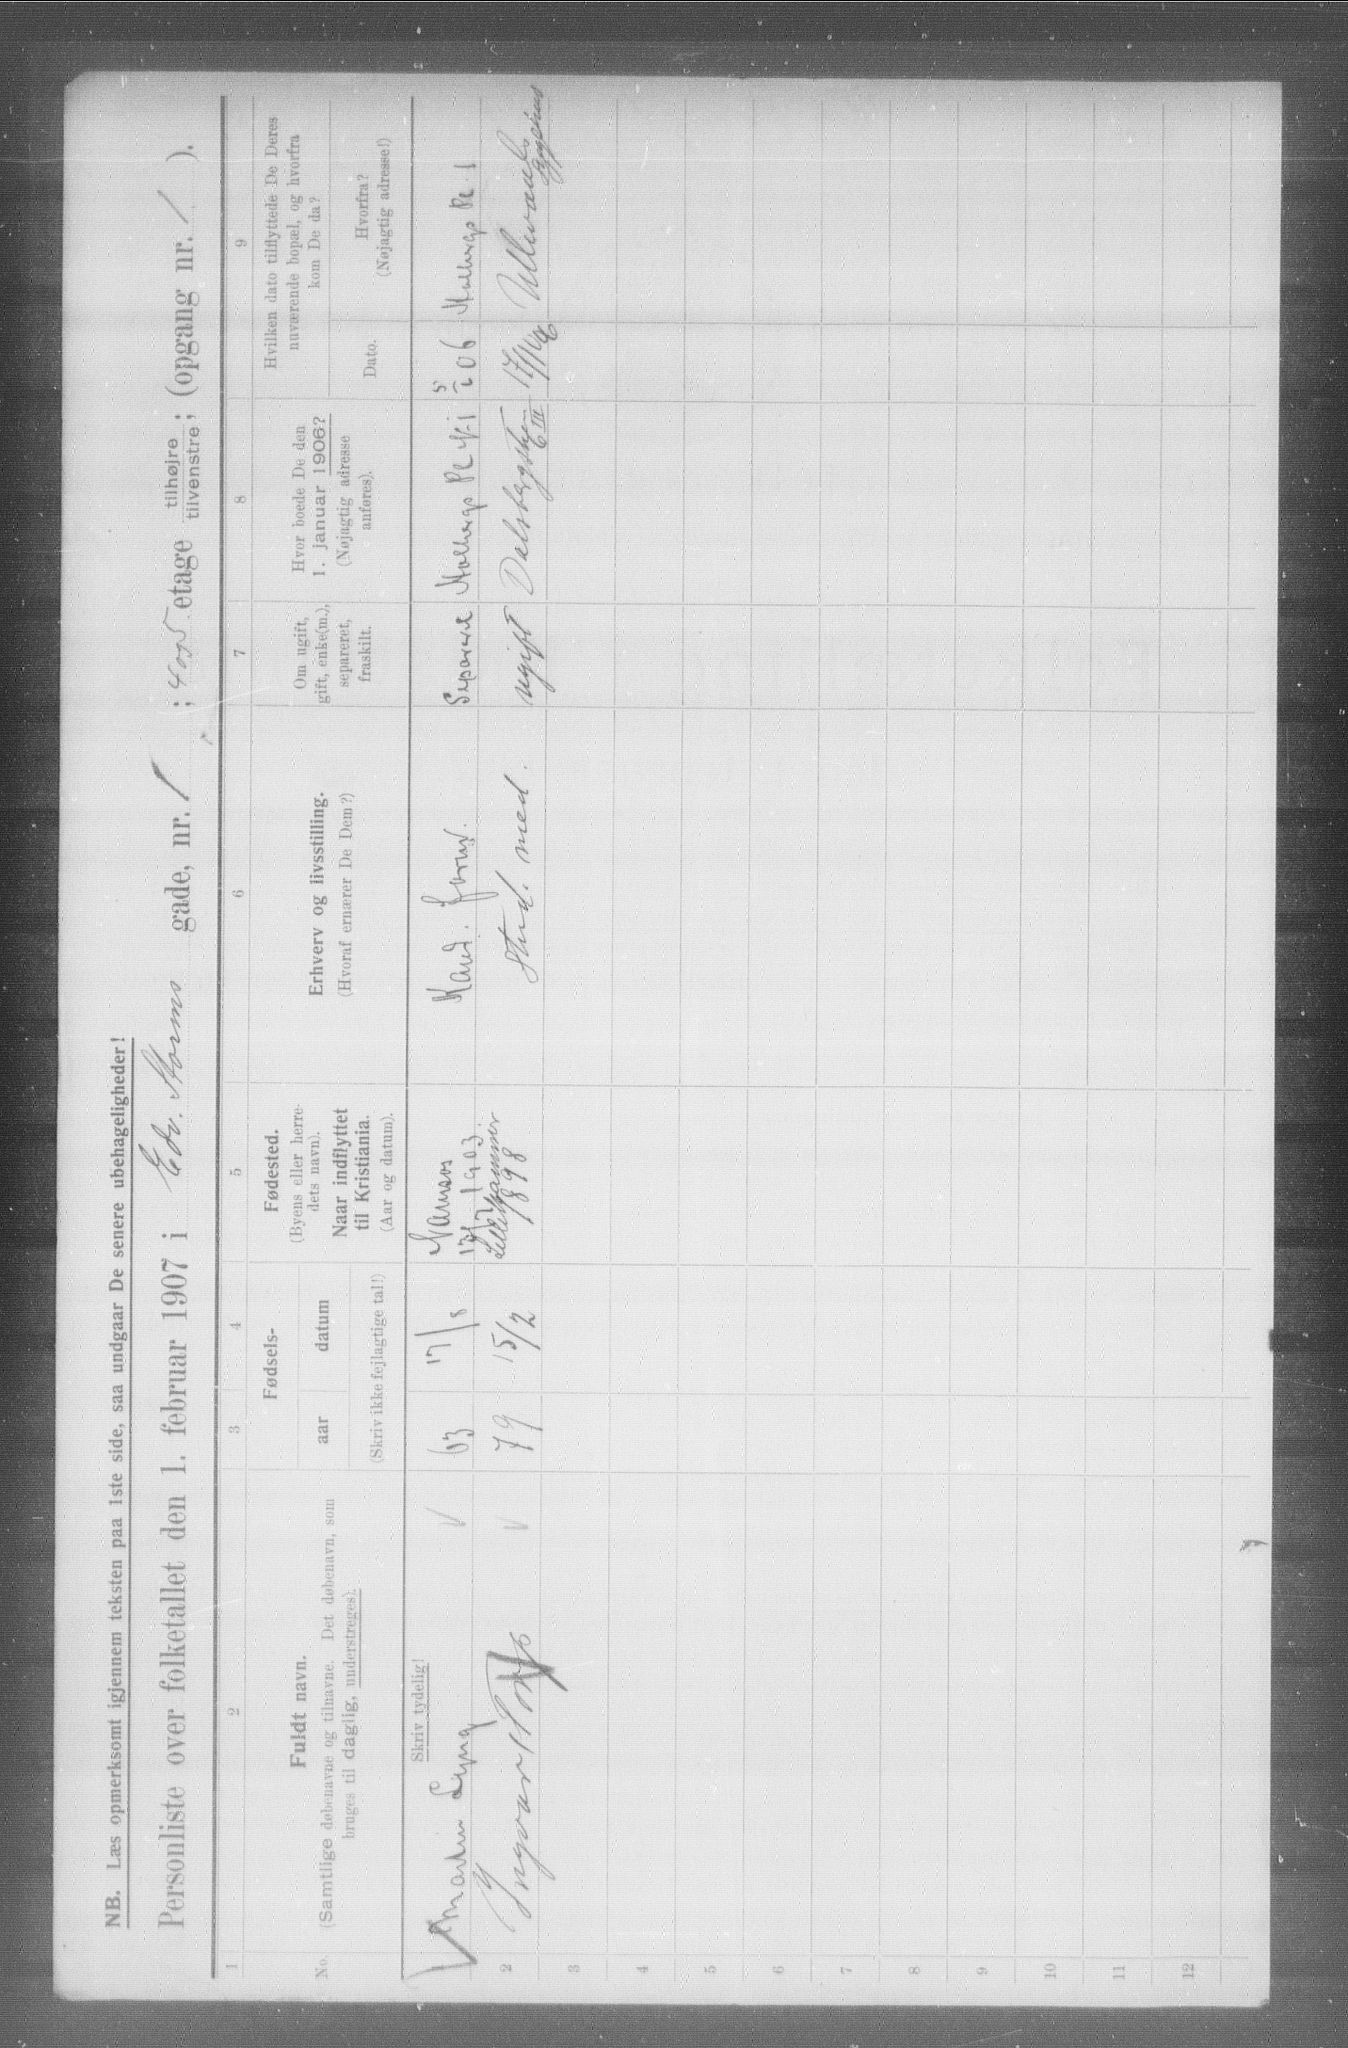 NB. Læs opmerksomt igjennem teksten paa 1ste side, saa undgaar De senere ubehageligheder!
Personliste over folketallet den 1. februar 1907 i Edv. Storms gade, nr. 1 ; etage tilhøjre tilvenstre; (opgang nr. 1 ).
1 2 3 4 5 6 7 8 9
No.
Fuldt navn.
(Samtlige døbenavne og tilnavne. Det døbenavn, som
bruges til daglig, understreges).
Fødsels-
aar datum
(Skriv ikke fejlagtige tal!)
Fødested.
(Byens eller herre-
dets navn).
Naar indflyttet
til Kristiania.
(Aar og datum).
Erhverv og livsstilling.
(Hvoraf ernærer De Dem?)
Om ugift,
gift, enke(m.),
separeret,
fraskilt.
Hvor boede De den
1. januar 1906?
(Nøjagtig adresse
anføres).
Hvilken dato tilflyttede De Deres
nuværende bopæl, og hvorfra
kom De da?
Dato.
Hvorfra?
(Nøjagtig adresse!)
Skriv tydelig!
Martin Lyng 63 17/8 Namsos 1903 Kand. Separeret Holbergs Pl 06 Holbergs Pl. 1
2 Ingvar 79 15/2 Lillehammer 1898 stud. med. ugift Dalsbergstien 6 III Ullevaals sygehus
3
4
5
6
7
8
9
10
11
12